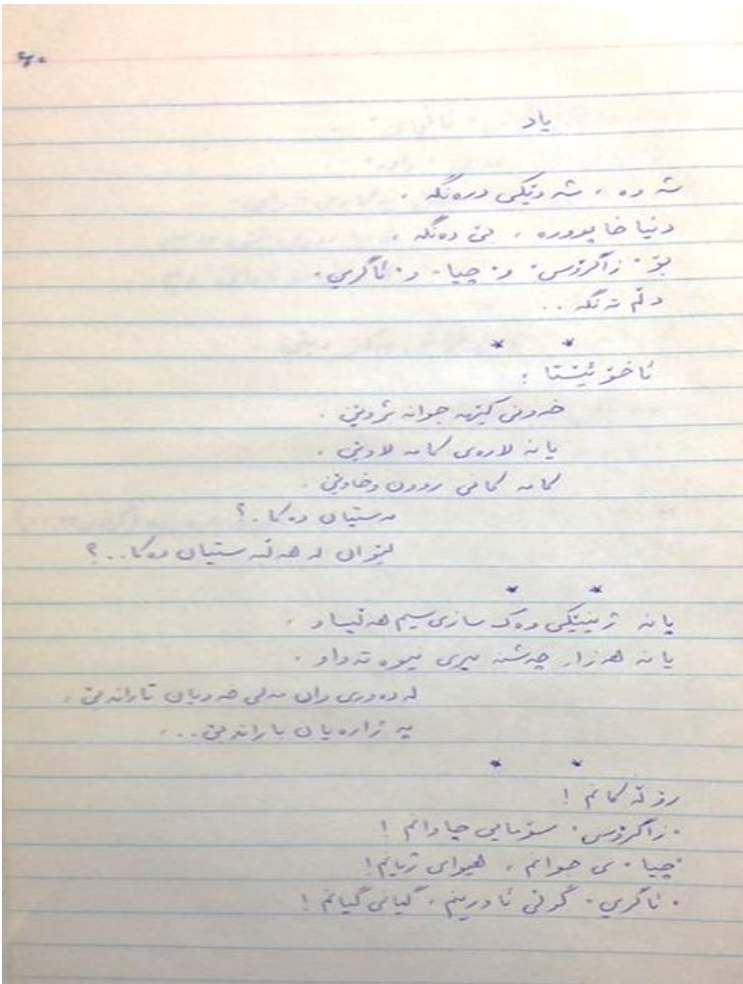 ٤٠
یاد
شەوە ، شەوێکی درەنگە ،
دنیا خاپوورە ، بێ دەنگە ،
بۆ "زاگرۆس" و "چیا" و "ئاگری"
دڵم تەنگە ..
* *
ئاخۆ ئێستا :
خەونی کێژە جوانە ئەوین .
یانە لارەی کامە لاوێ .
کامە کانی روون وخاوێن .
مەستیان دەکا .؟
لێوان لە هەڵبەستیان دەکا..؟
* *
یانە ژینێکی وەک سازی سیم هەڵپساو .
یانە هەزار چەشنە بیری نیوە تەواو .
لە دەوری ران مەلی خەویان تاراندبێ .
پەژارەیان باراندبێ ...
* *
رۆڵەکانم !
"زاگرۆس" سۆمایی چاوانم !
"چیا" ی جوانم ، هیوای ژیانم !
"ئاگری" گوڵی ئاورینم ، گیانی گیانم !